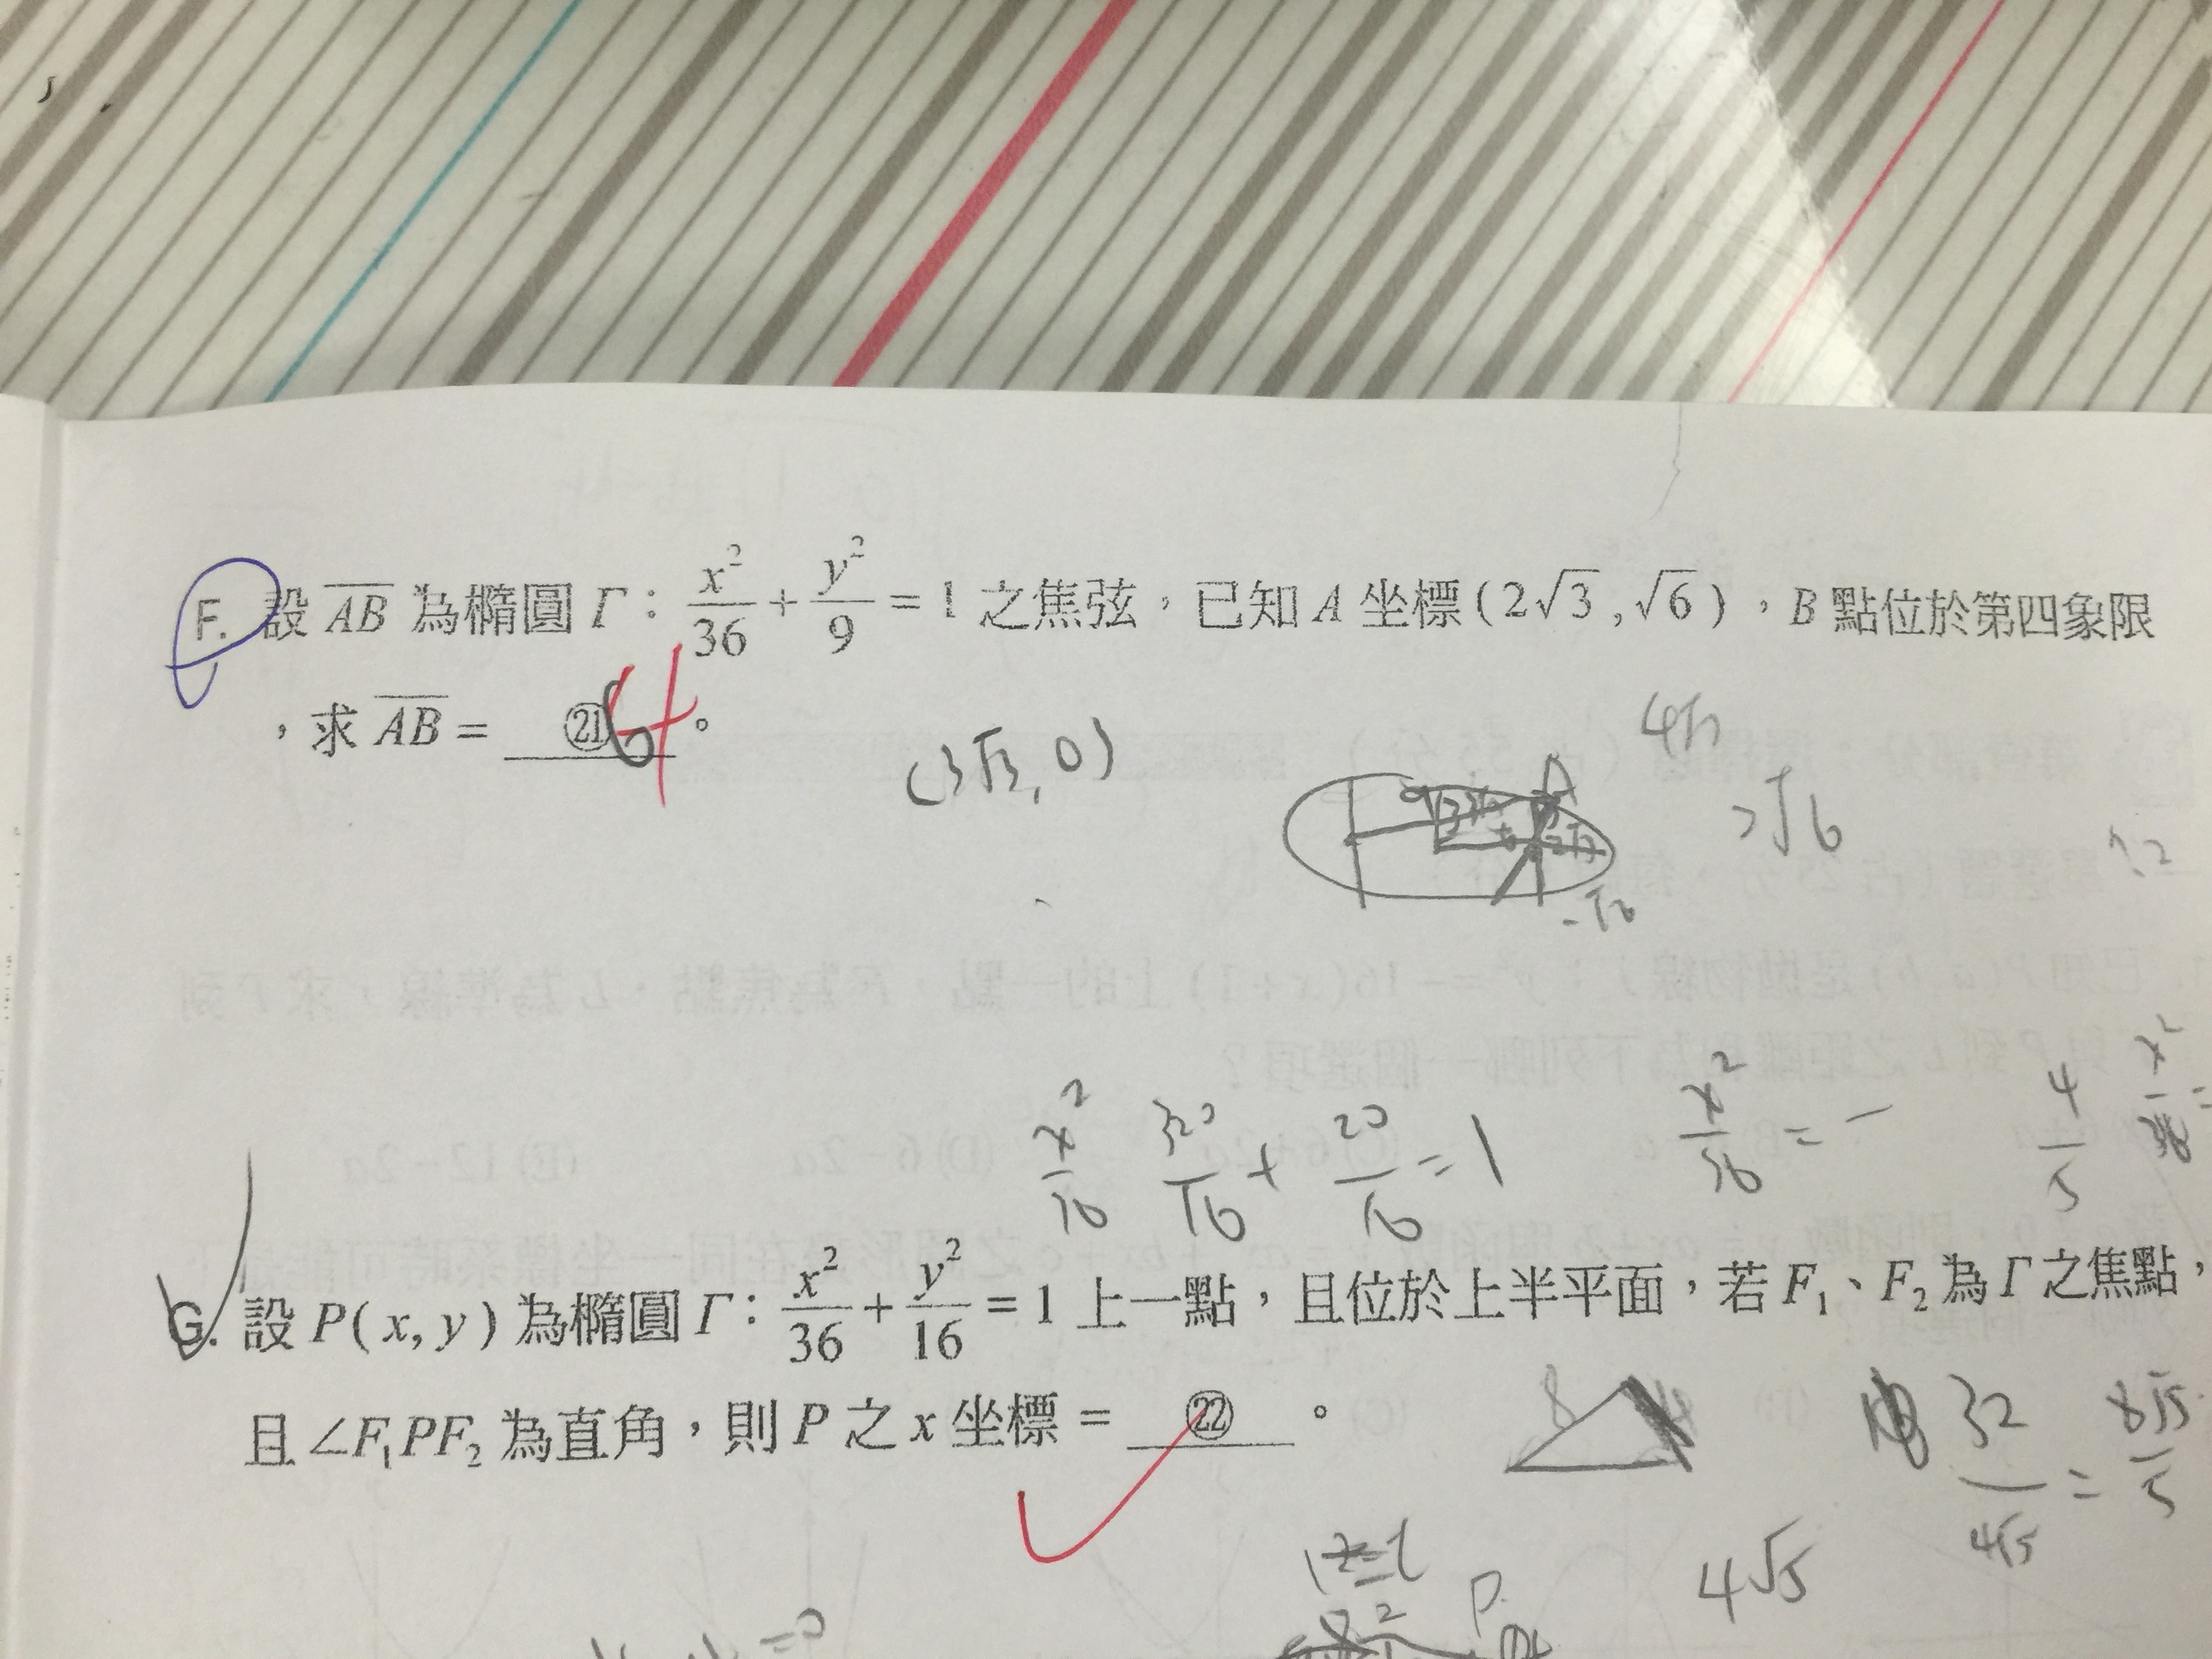 F. 設 AB 為橢圓 Γ: x²/36 + y²/9 = 1 之焦弦，已知 A 坐標(2√3,√6)，B 點位於第四象限
，求 AB = ㉑ 6 。
(3√3, 0)
A
2√6
x²/16 320/16 + 20/16 = 1
x²/36 = -
4/5
G. 設 P(x,y) 為橢圓 Γ: x²/36 + y²/16 = 1 上一點，且位於上半平面，若 F₁、F₂ 為 Γ 之焦點，
且 ∠F₁PF₂ 為直角，則 P 之 x 坐標 = ㉒ 。
8
32/4√5 = 8√5/5
4√5
P
=0